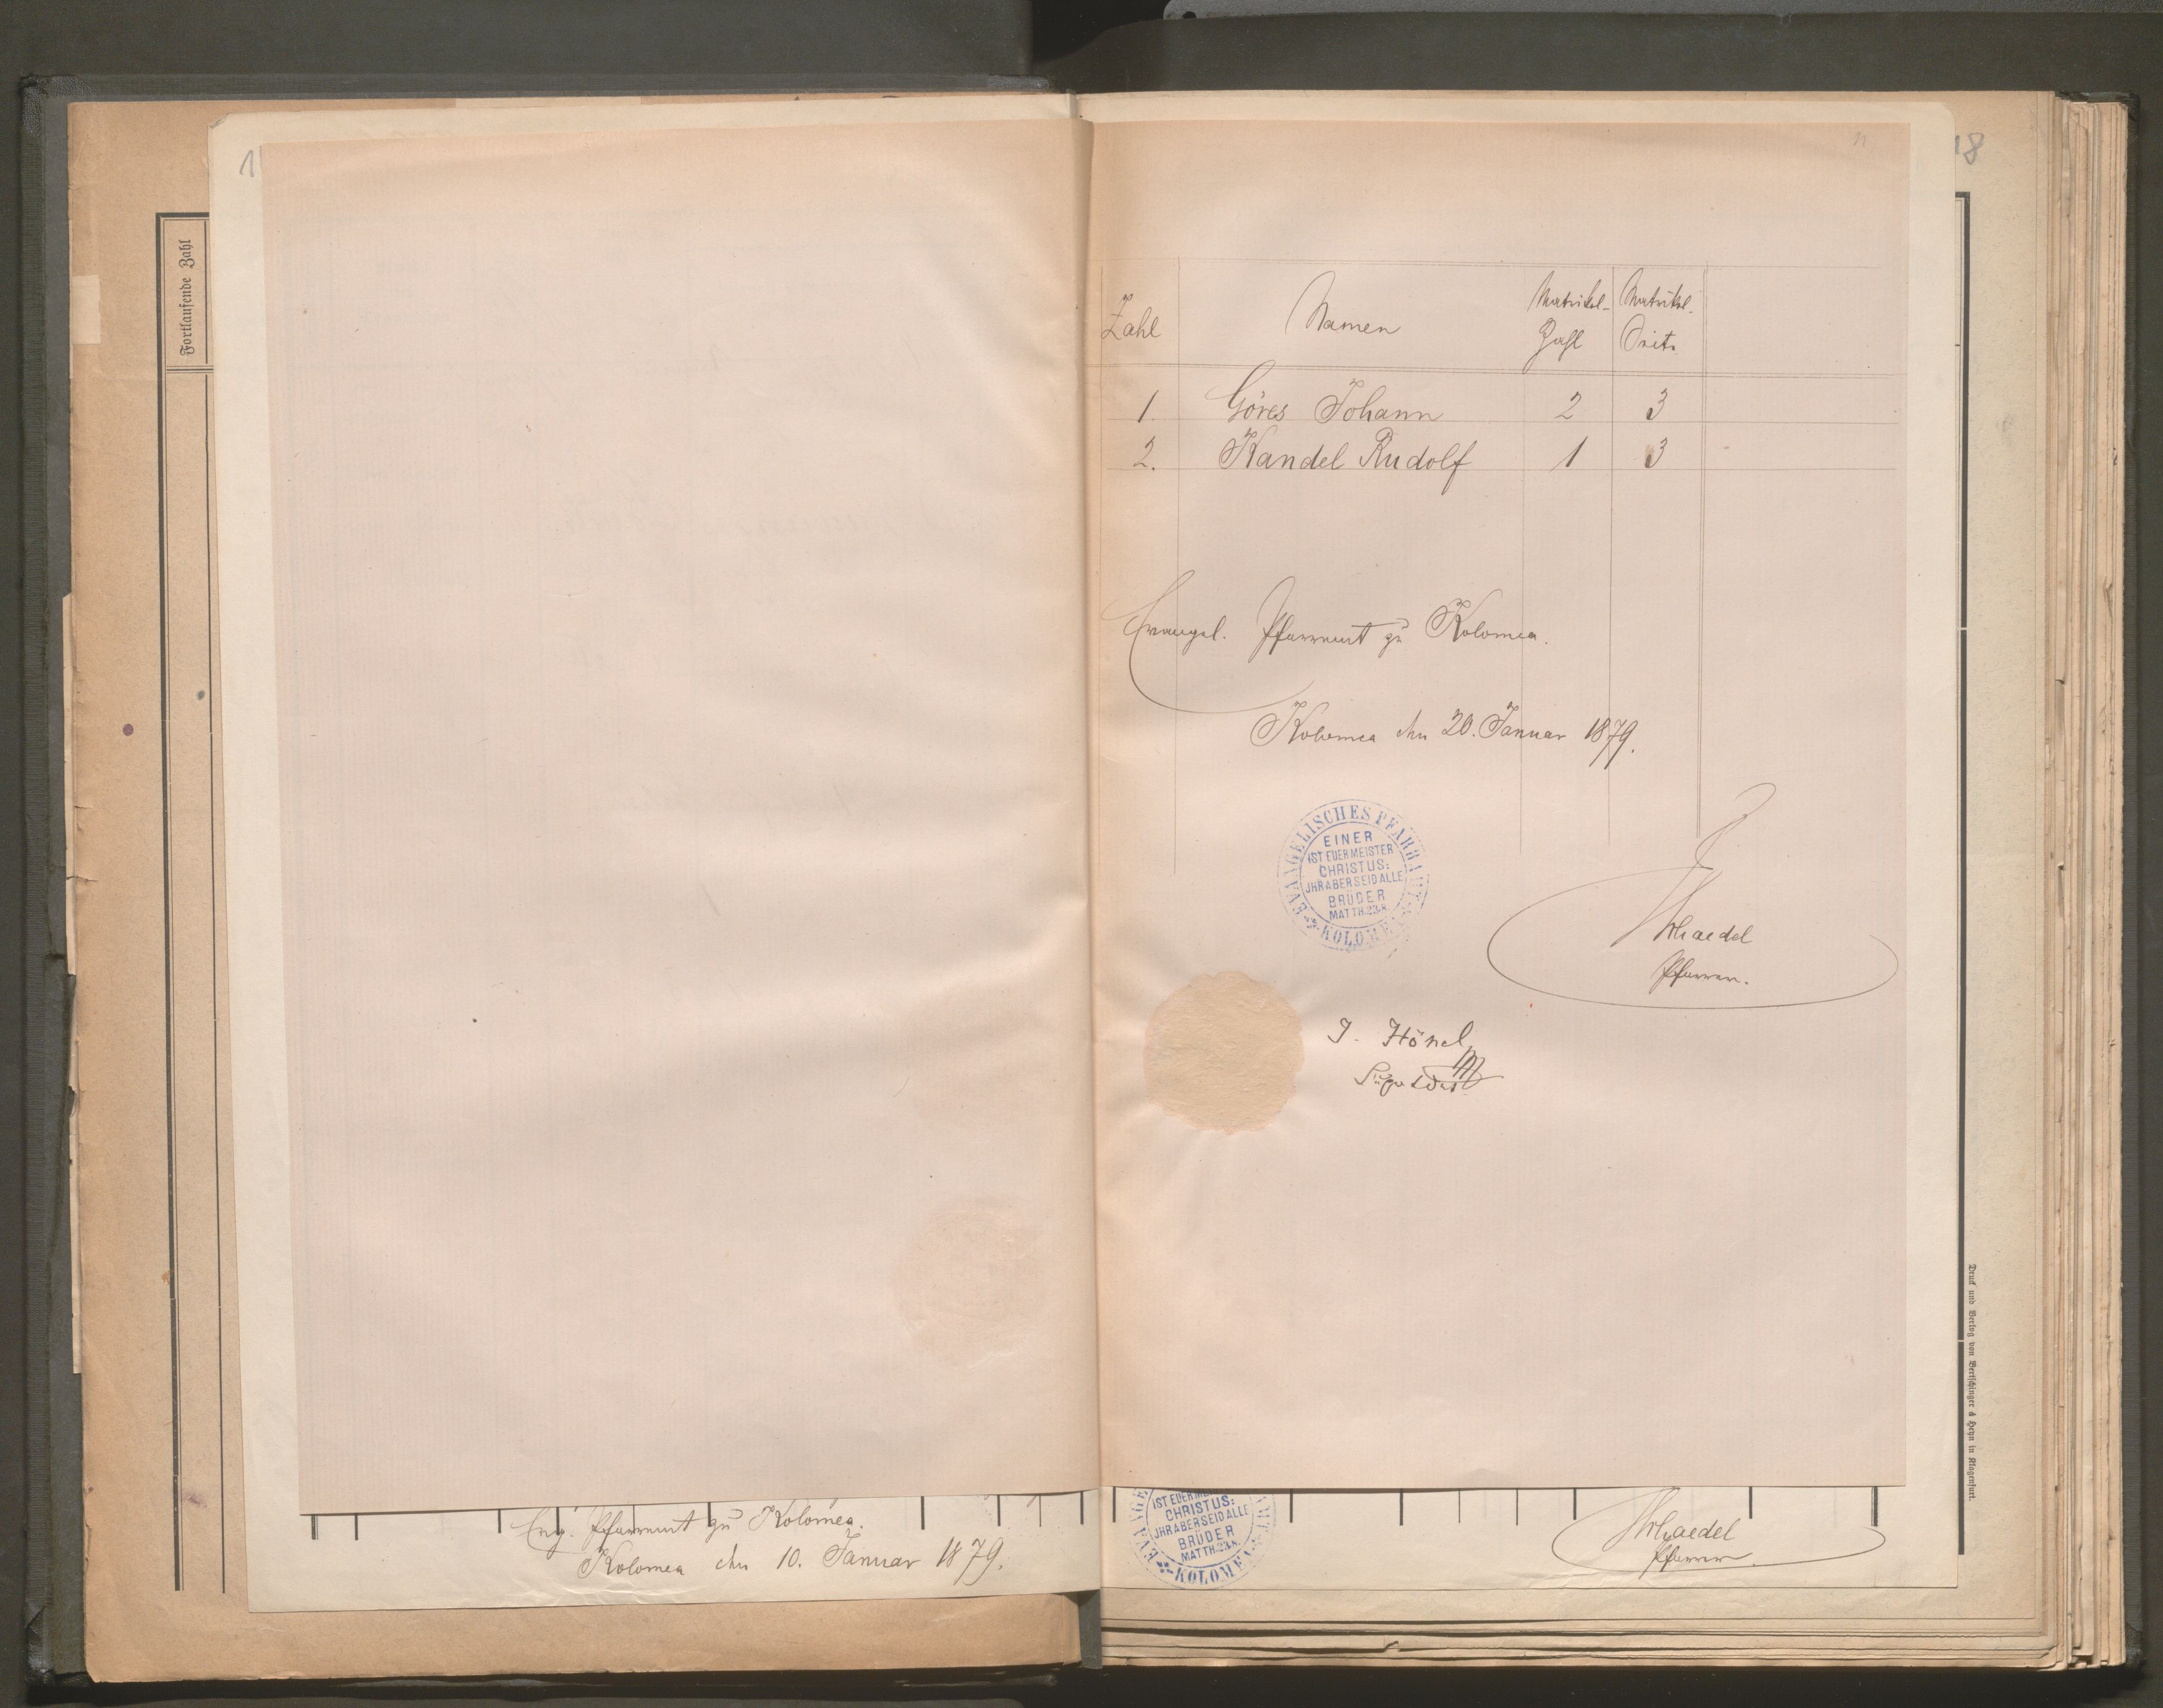 1
18
11
Fortlaufende Zahl
Zahl
Namen
Matrikel-
Zahl
Matrikel.
Seite
1. Göres Johann 2 3
2. Kandel Rudolf 1 3
Evangel. Pfarramt zu Kolomea.
Kolomea den 20. Januar 1879.
EVANGELISCHES PFARRAMT
EINER
IST EUER MEISTER
CHRISTUS:
JHR ABER SEID ALLE
BRÜDER
MATTH.23.8.
KOLOMEA
Pfarrer.
J. Hönel
Evg. Pfarramt zu Kolomea.
Kolomea den 10. Januar 1879.
IST EUER MEISTER
CHRISTUS:
JHR ABER SEID ALLE
BRÜDER
MATTH.23.8.
KOLOMEA
Pfarrer.
Druck und Verlag von Bertschinger & Heyn in Klagenfurt.